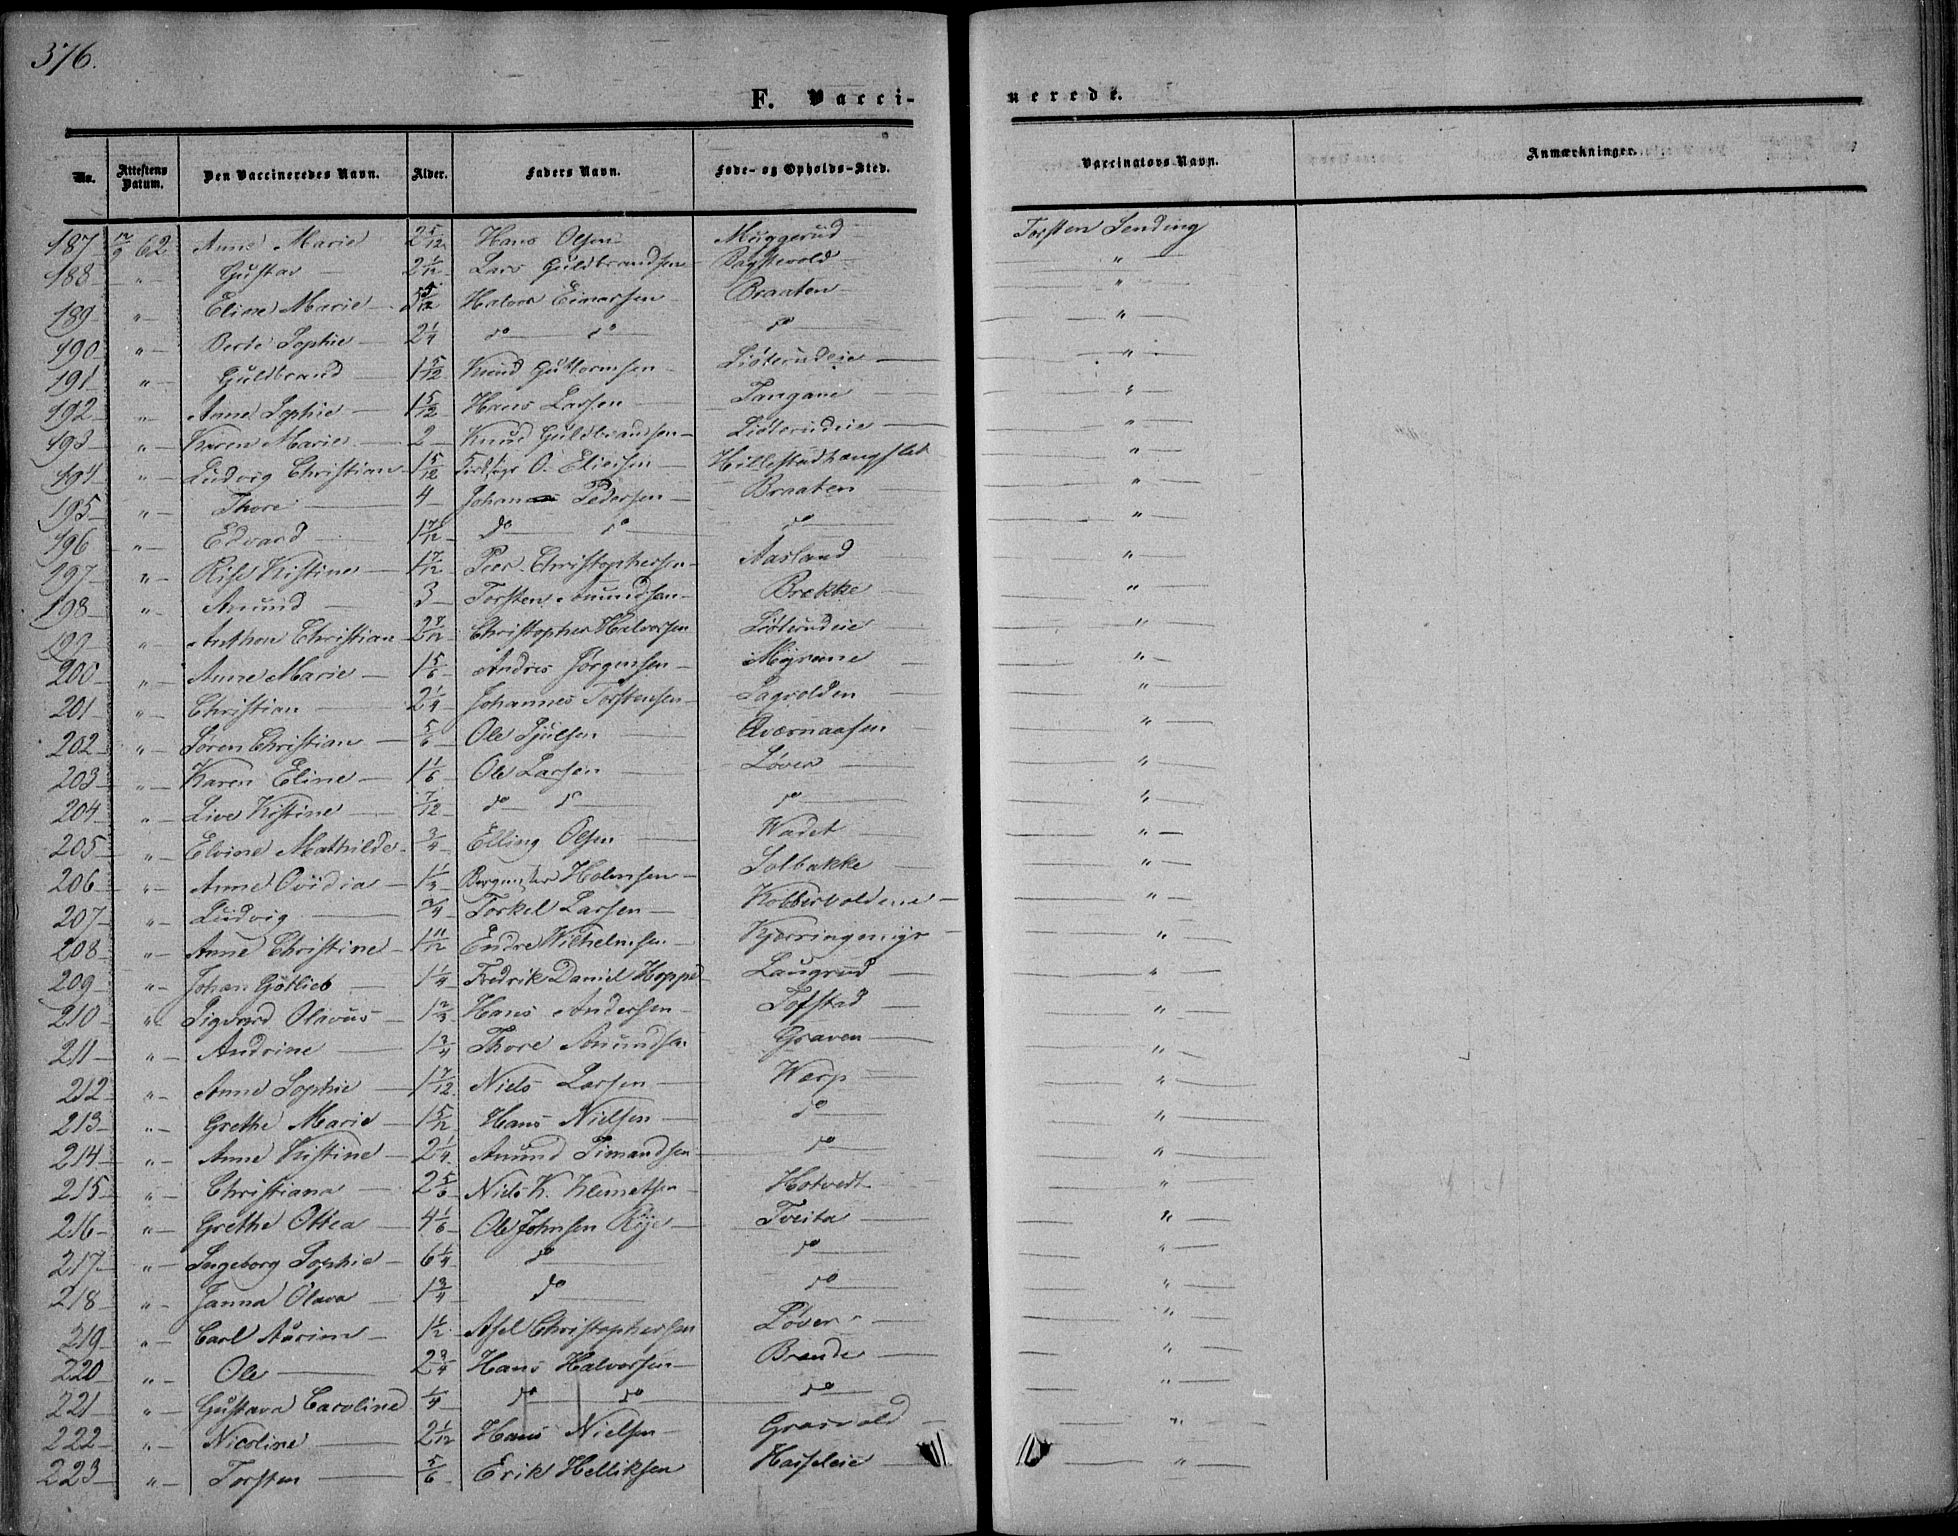 376.
F. Vacci-
nerede.
No. Attestens Datum. Den Vaccineredes Navn. Alder. Faders Navn. Føde- og Opholds-Sted. Vaccinatovs Navn. Anmærkninger.
187 12/9 62 Anne Marie 2 5/12 Hans Olsen Muggerud Torsten Sending
188 " Gustav 2 1/12 Lars Guldbrandsen "
189 " Eline Marie 5/12 Halvor Einarsen Braaten "
190 " Berte Sophie 2 1/4 do do do "
191 " Guldbrand 1 5/12 Knud Guttormsen Liøterudeie "
192 " Anne Sophie 1 5/12 Hans Larsen Tangane "
193 " Karen Marie 2 Knud Guldbrandsen Liøterudeie "
194 " Ludvig Christian 1 5/12 O. Eliesen "
195 " Thore 4 Johan Pedersen Braaten "
196 " Edvard 1 7/12 do do do "
197 " Kistine 1 7/12 Peer Christophersen Aasland "
198 " Amund 3 Torsten Amundsen Brække "
199 " Anthon Christian 2 7/12 Christopher Halvorsen Liøterudeie "
200 " Anne Marie 1 5/6 Andres Jørgensen Myrene "
201 " Christian 2 1/4 Johannes Torstensen Lagvolden "
202 " Søren Christian 5/6 Ole Qværnaasen "
203 " Karen Eline 1 1/6 Ole Larsen Løver "
204 " Live Kistine 7/12 do do do "
205 " Elvine Mathilde 3/4 Elling Olsen Wadet "
206 " Anne Ovidia 1 1/3 Holmsen Solbakke "
207 " Ludvig 3/4 Torkel Larsen Kobbervoldene "
208 " Anne Christine 1 11/12 Endre Wilhelmsen Kjærringmyr "
209 " Johan Gotlieb 1 1/4 Fredrik Daniel Hoppe Laugrud "
210 " Sigvard Olavus 1 2/3 Hans Andersen Tofstad "
211 " Andrine 1 3/4 Thore Amundsen Graven "
212 " Anne Sophie 1 7/12 Niels Larsen Werp "
213 " Grethe Marie 1 5/12 Hans Nielsen do "
214 " Anne Kistine 2 1/4 Amund Simandsen do "
215 " Christiana 2 5/6 Niels K. Klemetsen Hotvedt "
216 " Grethe Ottea 4 1/6 Ole Johnsen Rye Tveita "
217 " Ingeborg Sophie 6 1/4 do do "
218 " Janna Olava 1 3/4 do do "
219 " Carl 1 1/2 Axel Christophersen Løver "
220 " Ole 2 3/4 Hans Halvorsen Brende "
221 " Gustava Caroline 1/4 do do do "
222 " Nicoline 2 1/12 Hans Nielsen Grosvold "
223 " Torsten 5/6 Erik Helliksen Hasseleie "